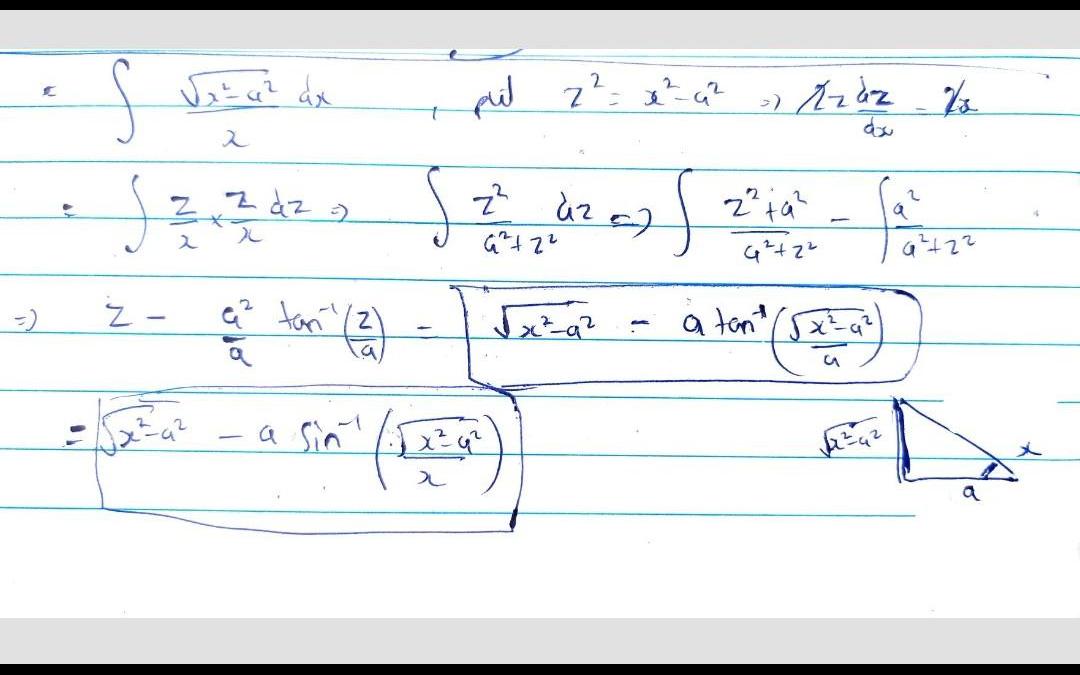 = ∫ √(x²-a²)/x dx , put z² = x²-a² => 2z dz/dx = 2x
= ∫ z/x × z/x dz => ∫ z²/(a²+z²) dz => ∫ (z²+a²)/(a²+z²) - ∫ a²/(a²+z²)
=> z - a²/a tan⁻¹(z/a) = √(x²-a²) - a tan⁻¹(√(x²-a²)/a)
= √(x²-a²) - a sin⁻¹(√(x²-a²)/x) √(x²-a²) x
a